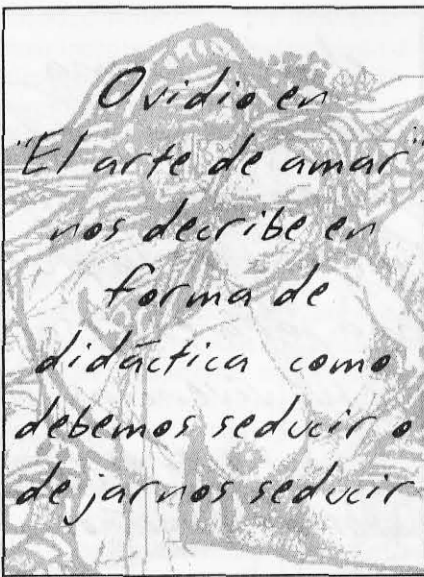 Ovidio en
"El arte de amar"
nos decribe en
forma de
didáctica como
debemos seducir o
dejarnos seducir